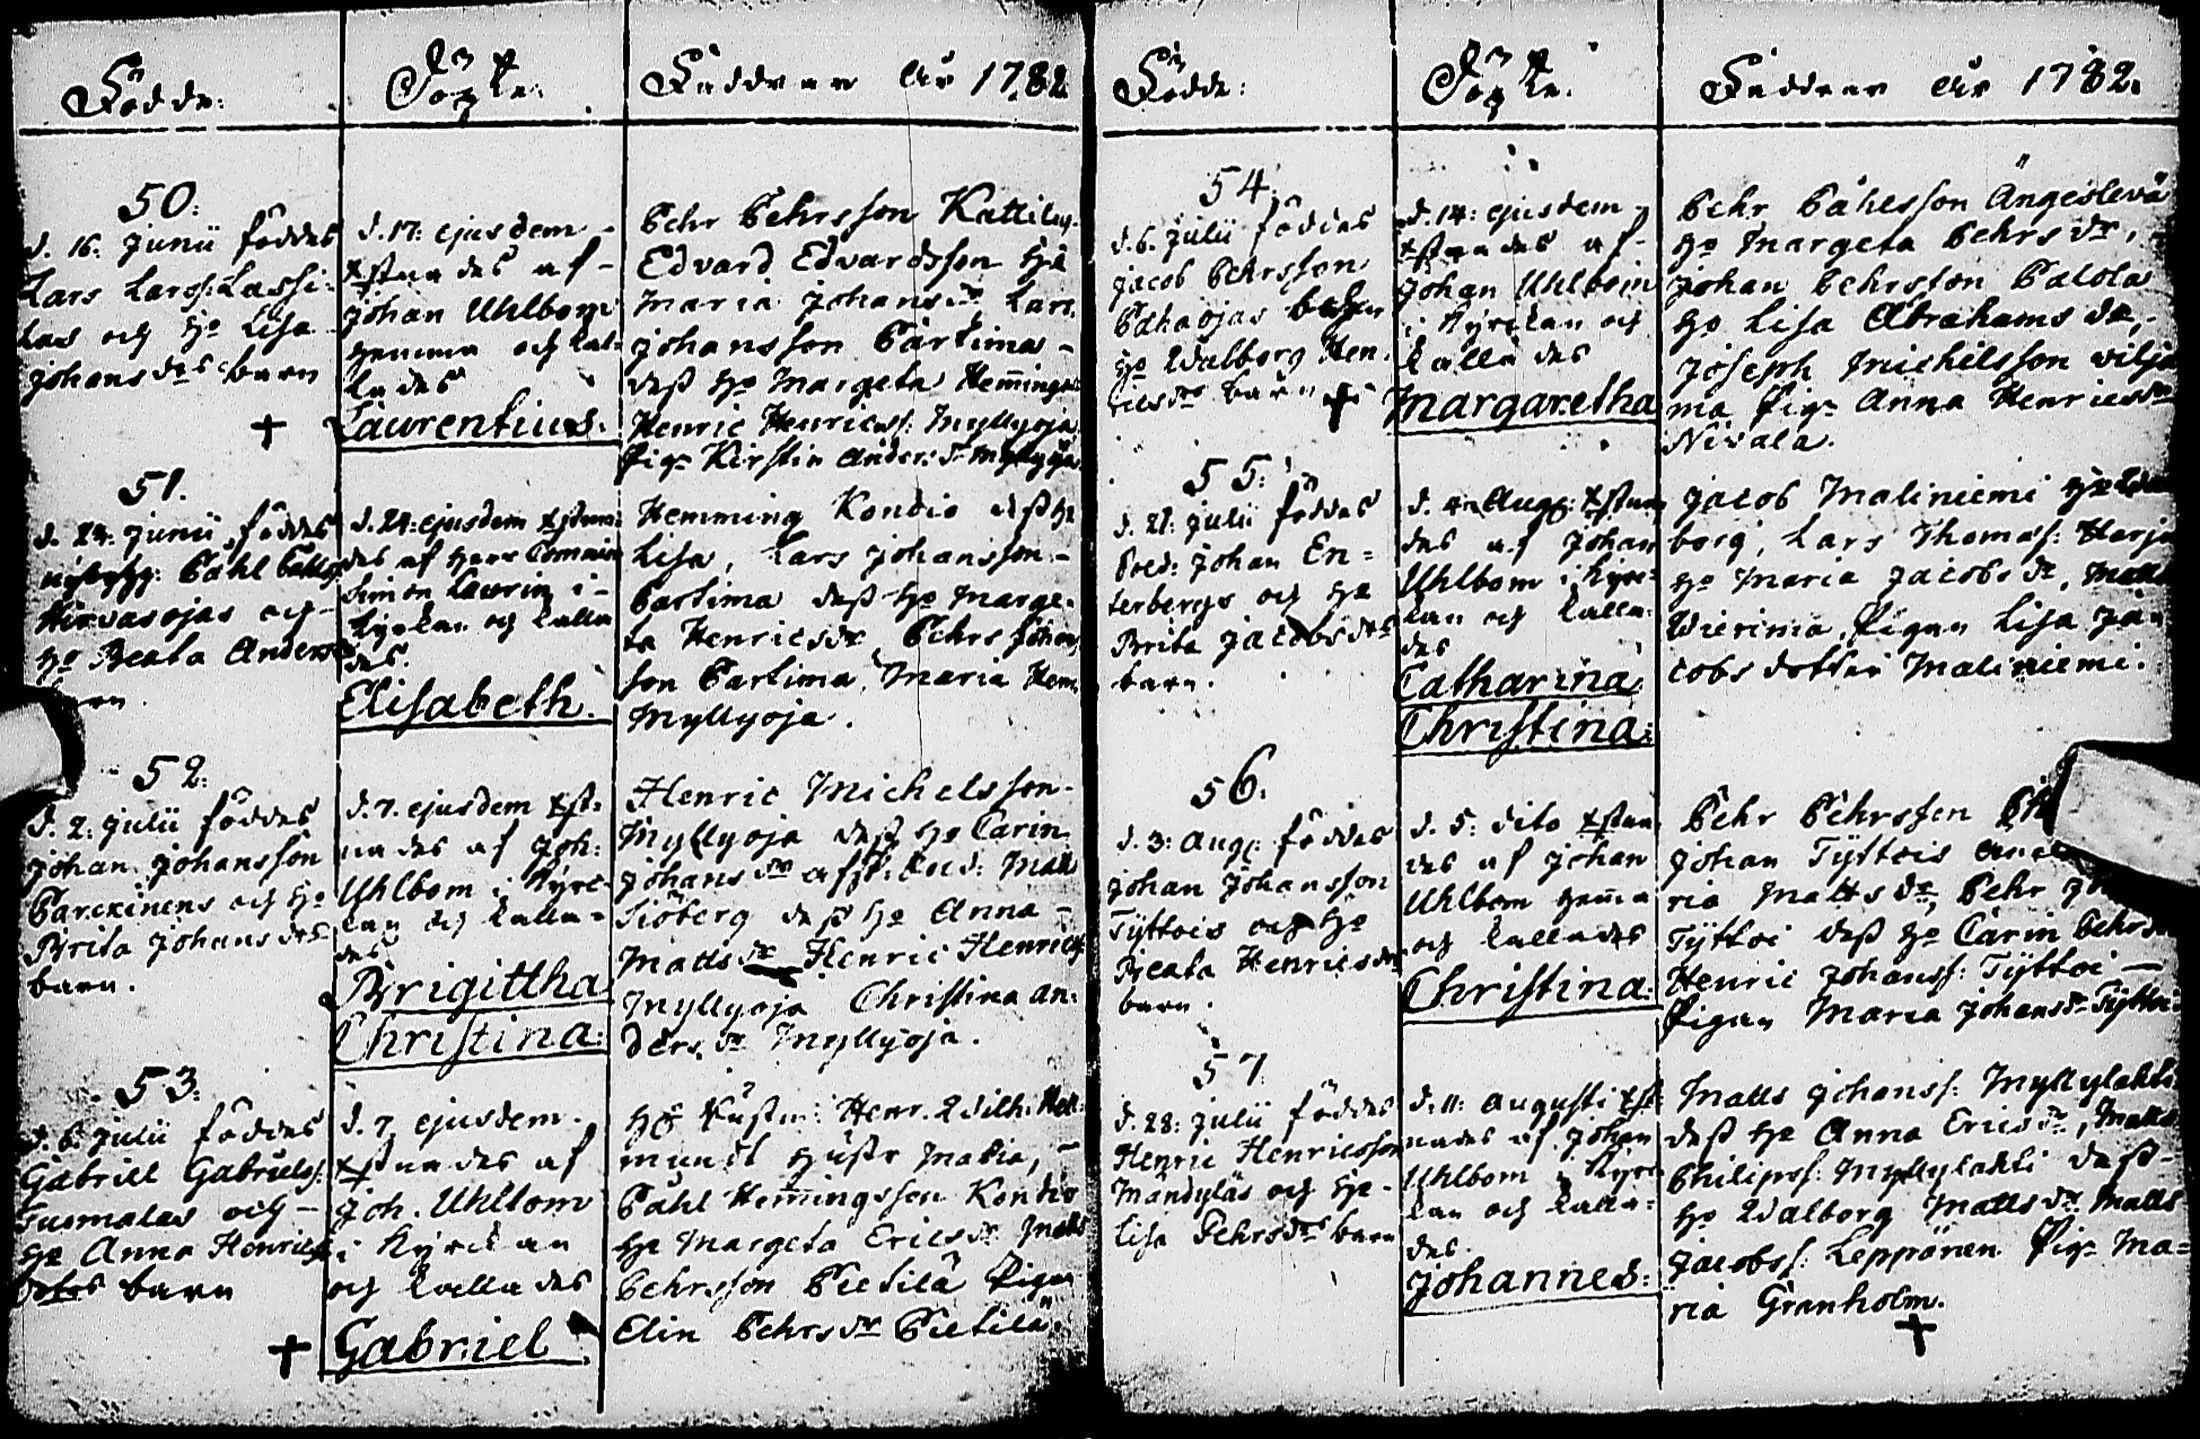 Födde:
Döpte:
Faddrar År 1782.
50:
d. 16. Junii föddes
Lars Larss: Lassi-
las och Ho Lisa
Johansdrs barn
†
d. 17: ejusdem
xstnades af
Johan Uhlbom
hemma och kal-
lades
Laurentius.
Pehr Pehrsson Kattilus
Edvard Edvardsson Ha
Maria Johansdr Lars
Johansson Partima
dess Ho Margeta Hemmings
Henric Henricss: Myllyoja
Pig. Kirstin Anders dr Myllyoja
51.
d. 24: Junii föddes
nybygg: Påhl Påhls
Hirvasojas och
Ho Beata Anders
barn.
d. 24: ejusdem xstna
des af Herr Comminis
Simon Laurin i
Kyrkan och kalla
des.
Elisabeth.
Hemming Kondio dess Ha
Lisa, Lars Johansson
Partima dess Ho Marge-
ta Henricsdr, Pehrs Johans
son Partima, Maria Hem
Myllyoja.
52:
d. 2: Julii föddes
Johan Johansson
Parckinens och Ho
Brita Johansdrs
barn.
d. 7. ejusdem xst-
nades af Joh:
Uhlbom i Kyrc-
kan och kalla-
des
Brigittha
Christina:
Henric Michelsson
Myllyoja dess Ho Carin
Johansdr afsk: Sold: Matts
Siöberg dess Ho Anna
Mattsdr Henric Henrics
Myllyoja Christina An-
ders dr Myllyoja.
53:
d. 6. Julii föddes
Gabriel Gabrielss:
Tuomalas och
Ha Anna Henrics
dotrs barn
†
d. 7. ejusdem
xstnades af
Joh. Uhlbom
i Kyrckan
och kallades
Gabriel
Henr. Wilh.
Hustr Maria,
Påhl Hemmingsson Kondio
Ha Margeta Ericsdr Matts
Pehrsson Pietilä Pigan
Elin Pehrsdr Pietilä.
Födde:
Döpte.
Faddrar År 1782.
54:
d. 6. Julii föddes
Jacob Pehrsson
Pahaojas
Ho Walborg Hen-
ricsdrs barn †
d. 14: ejusdem
xstnades af
Johan Uhlbom
i Kyrckan och
kallades
Margaretha
Pehr Påhlsson Ängeslevä
Ho Margeta Pehrsdr,
Johan Pehrsson Palola
Ho Lisa Abrahamsdr,
Joseph Michelsson Vilja
ma Pig. Anna Henricsdr
Nivala.
55:
d. 27: Julii föddes
Sold: Johan En-
terbergs och Ha
Brita Jacobsdrs
barn.
d. 4. Aug: xstna
des af Johan
Uhlbom i Kyrc-
kan och kalla-
des
Catharina
Christina:
Jacob Maliniemi Ha
borg, Lars Thomass: Harju
Ho Maria Jacobsdr, Matts
Wierima, Pigan Lisa Ja-
cobs dotter Maliniemi.
56.
d. 3: Aug: föddes
Johan Johansson
Tyttois och Ho
Beata Henricsdrs
barn.
d. 5: dito xstna
des af Johan
Uhlbom hemma
och kallades
Christina:
Pehr Pehrsson
Johan Tyttois
ria Mattsdr, Pehr
Tyttoi dess Ho Carin Pehrsdr
Henric Johanss: Tyttoi
Pigan Maria Johansdr Tyttoi
57.
d. 28: Julii föddes
Henric Henricsson
Mandyläs och Ha
Lisa Pehrsdrs barn
d. 11: Augusti xst
nades af Johan
Uhlbom i Kyrc
kan och kalla-
des.
Johannes:
Matts Johanss: Myllylahti
dess Ha Anna Ericsdr, Matts
Philipss: Myllylahti dess
Ho Walborg Mattsdr Matts
Jacobss: Leppänen Pig. Ma-
ria Granholm.
†